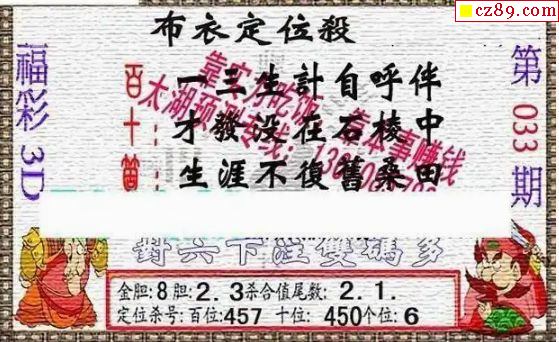 cz89.com
布衣定位殺
福彩3D
第033期
百：一三生計自呼伴
十：才發没在石棱中
箇：生涯不復舊桑田
靠实力吃饭 靠本事赚钱
太湖预测专线：
對六下注雙碼多
金胆:8胆:2.3杀合值尾数:2.1.
定位杀号:百位:457 十位:450个位:6